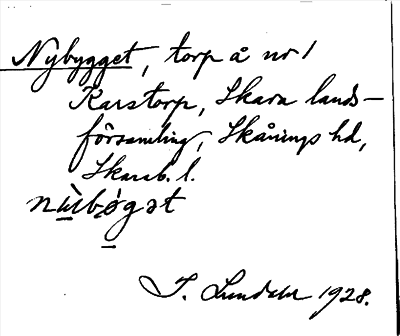 Nybygget, torp å nr 1
Karstorp, Skara lands-
församling, Skånings hd,
Skarab. l.
nùbǿgət
I. Lundahl 1928.